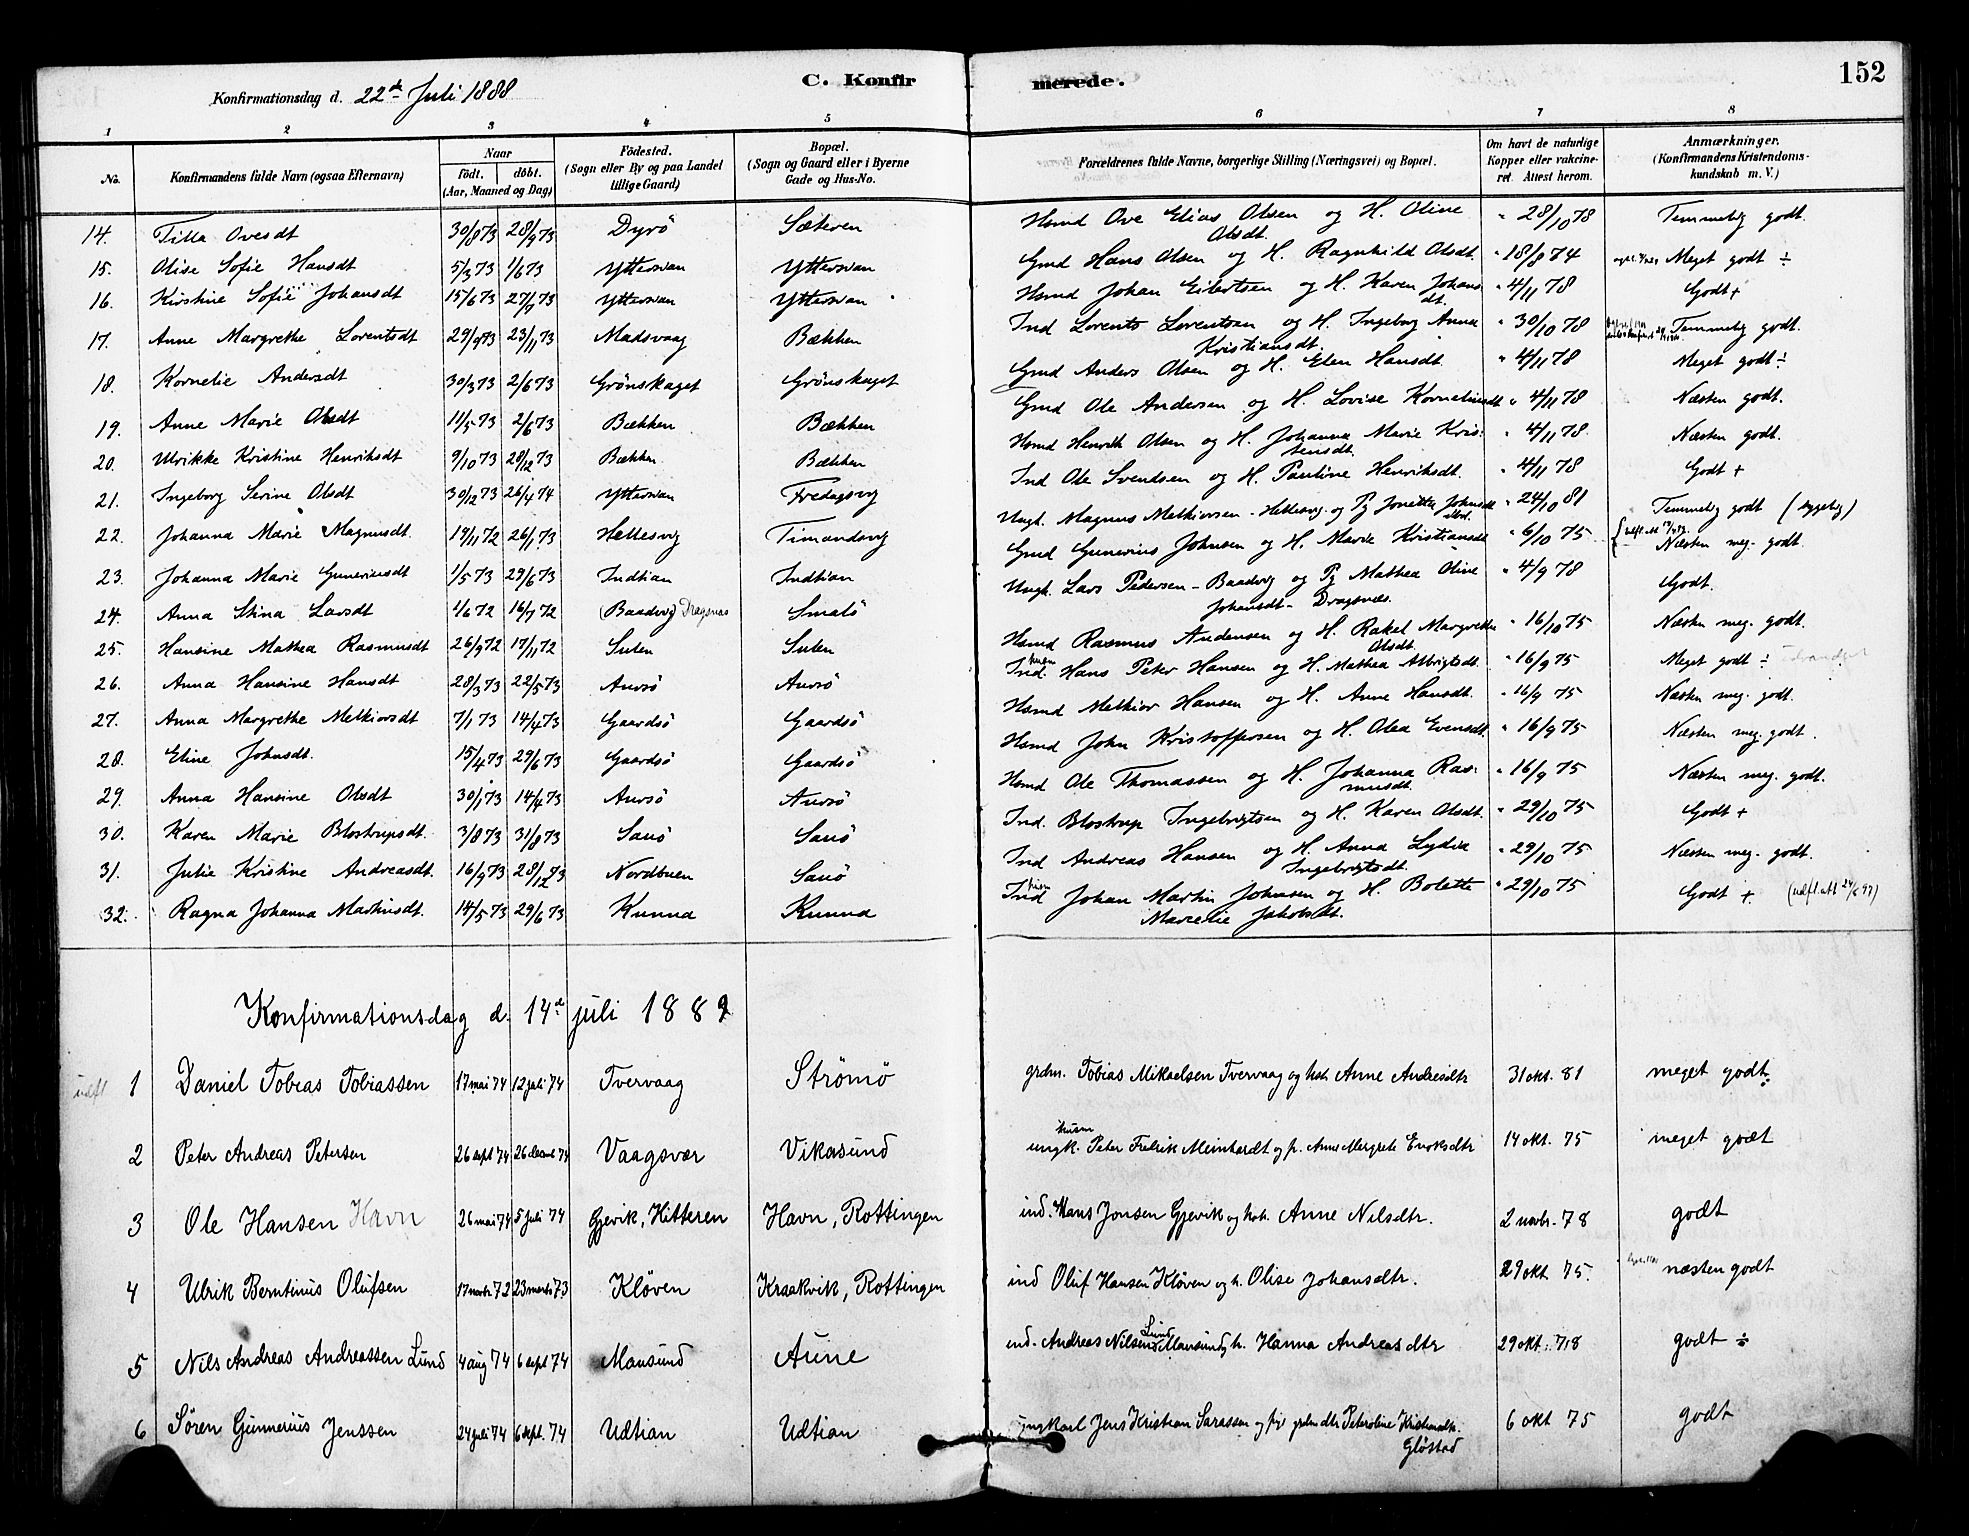 Konfirmationsdag d. 22de Juli 1888
C. Konfirmerede.
152
1 2 3 4 5 6 7 8
No. Konfirmandens fulde Navn (ogsaa Efternavn) Naar födt. döbt. (Aar, Maaned og Dag) Födested. (Sogn eller By og paa Landet tillige Gaard) Bopæl. (Sogn og Gaard eller i Byerne Gade og Hus-No. Forældrenes fulde Navne, borgerlige Stilling (Næringsvei) og Bopæl. Om havt de naturlige Kopper eller vakcineret. Attest herom. Anmærkninger. (Konfirmandens Kristendomskundskab m. V.)
14. Tilla Ovesdt 30/8 73 28/9 73 Dyrö Sæteren Hsmd Ove Elias Olsen og H. Oline Olsdt. " 28/10 78 Temmelig godt.
15. Olise Sofie Hansdt 5/3 73 1/6 73 Yttersian Yttersian Gmd Hans Olsen og H. Ragnhild Olsdt. " 18/8 74 Meget godt ÷
16. Kirstine Sofie Johansdt 15/6 73 27/9 73 Yttersian Yttersian Hsmd Johan Eilertsen og H. Karen Johansdt. " 4/11 78 Godt +
17. Anne Margrethe Lorentsdt 29/9 73 23/11 73 Madsvaag Bækken Ind Lorents Lorentsen og H. Ingeborg Anna Kristiansdt. " 30/10 78 Temmelig godt.
18. Kornelie Andersdt 30/3 73 2/6 73 Grönskaget Grönskaget Gmd Anders Olsen og H. Elen Hansdt. " 4/11 78 Meget godt ÷
19. Anne Marie Olsdt 11/5 73 2/6 73 Bækken Bækken Gmd Ole Andersen og H. Lovise Korneliusdt " 4/11 78 Næsten godt.
20. Ulrikke Kristine Henriksdt 9/10 73 28/12 73 Bækken Bækken Hsmd Henrik Olsen og H. Johanna Marie Kristensdt. " 4/11 78. Næsten godt.
21. Ingeborg Serine Olsdt 30/12 73 26/4 74 Yttersian Fredagsvg Ind Ole Svendsen og H. Pauline Henriksdt. " 4/11 78 Godt +
22. Johanna Marie Magnusdt. 19/11 72 26/1 73 Hellesvg Timandsvg Ungk. Magnus Melkiorsen - Hellesvg. og Pg Jonetta Johnsdt " 24/10 81 Temmelig godt (sygelig)
23. Johanna Marie Guneriusdt 1/5 73 29/6 73 Indtian Indtian Gmd Gunerius Johnsen og H. Marie Kristiansdt " 6/10 75 Næsten meg. godt.
24. Anna Stina Larsdt 1/6 72 16/7 72 (Baadsvg) Dragsnæs Smalö Ungk. Lars Pedersen - Baadsvg og Pg Mathea Oline Johansdt - Dragsnæs. " 4/9 78 Godt.
25. Hansine Mathea Rasmusdt 26/9 72 17/11 72 Sulen Sulen Hsmd Rasmus Andersen og H. Rakel Margrethe Olsdt. " 16/10 75 Næsten meg. godt.
26. Anna Hansine Hansdt 28/3 73 22/5 73 Aursö Aursö Ind. husm Hans Peter Hansen og H. Mathea Albrigtsdt. " 16/9 75 Meget godt ÷
27. Anna Margrethe Melkiorsdt 7/1 73 14/4 73 Gaardsö Gaardsö Hsmd Melkior Hansen og H. Anne Hansdt. " 16/9 75 Næsten meg. godt.
28. Eline Johnsdt. 15/4 73 29/6 73 Gaardsö Gaardsö Hsmd John Kristoffersen og H. Olea Evensdt. " 16/9 75 Næsten meg. godt.
29. Anna Hansine Olsdt 30/1 73 14/4 73 Aursö Aursö Hsmd Ole Thomassen og H. Johanna Rasmusdt. " 16/9 75 Næsten meg. godt.
30. Karen Marie Blostrupsdt. 3/8 73 31/8 73 Sauö Sauö Ind. Blostrup Ingebrigtsen og H. Karen Olsdt. " 29/10 75 Godt +
31. Julie Kristine Andreasdt. 16/9 73 28/12 73 Nordbuen Sauö Ind Andreas Hansen og H. Anna Lydia Ingebrigtsdt. " 29/10 75 Næsten meg. godt.
32. Ragna Johanna Martinsdt. 14/5 73 29/6 73 Kunna Kunna Ind husm Johan Martin Johnsen og H. Bolette Marselie Jakobsdt. " 29/10 75 Godt +. (udfl. att 24/6 97)
Konfirmationsdag d. 14de juli 1889
udfl 1 Daniel Tobias Tobiassen 17 mai 74 12 juli 74 Tvervaag Strömö grdm. Tobias Mikaelsen Tvervaag og hst. Anne Andreasdtr 31 okt. 81 meget godt ÷
2 Peter Andreas Petersen 26 sept 74 26 decbr 74 Vaagsvær Vikasund husm ungk. Peter Fredrik Meinhardt og p. Anne Margrete Enoksdtr 14 okt. 75 meget godt
3 Ole Hansen Havn 26 mai 74 5 juli 74 Gjevik, Hitteren Havn, Rottingen ind. Hans Jonsen Gjevik og hst. Anne Nilsdtr. 2 novbr. 78 godt
4 Ulrik Berntinus Olufsen 17 novbr 72 23 marts 73 Klöven Kraakvik, Rottingen ind Oluf Hansen Klöven og h. Olise Johansdtr. 29 okt 75. næsten godt
5 Nils Andreas Andreassen Lund 4 aug 74 6 sept 74 Mausund Aune ind. Andreas Nilsen Lund Mausund, h. Hanna Andreasdtr 29 okt. 78 godt ÷
6 Sören Gunnerius Jenssen 24 juli 74 6 sept. 74 Udtian Udtian ungkarl Jens Kristian Larassen og pige grdmdtr Peteroline Kristensdtr. Glöstad 6 okt 75 godt